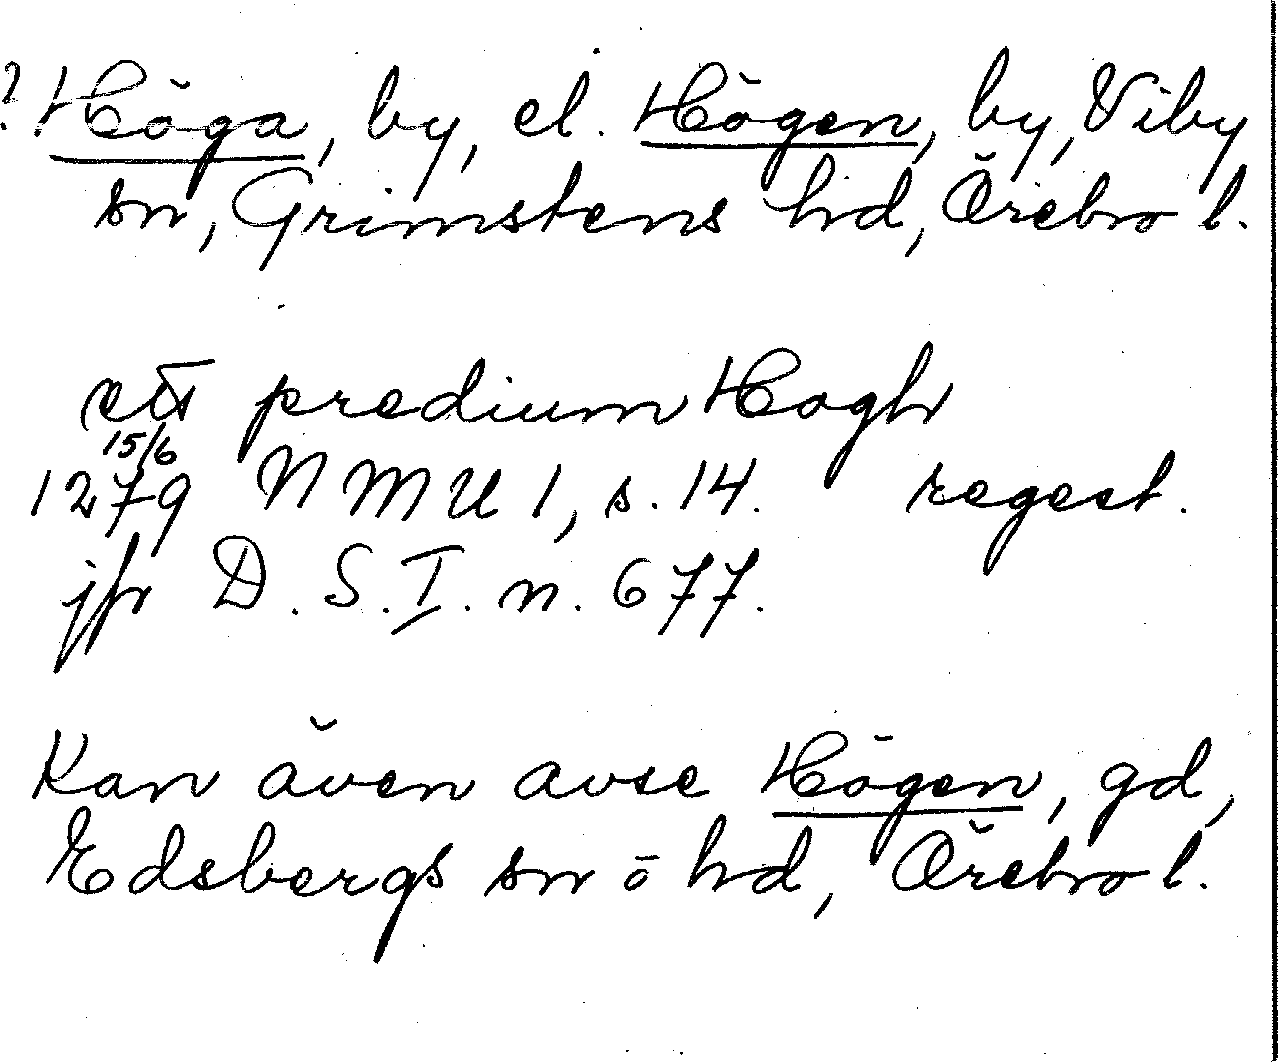 ? Höga, by, el. Högen, by, Viby
sn, Grimstens hd, Örebro l.
ett predium Hogh
15/6
1279 NMU 1, s. 14. regest.
jfr D.S.I. n. 677.
Kan även avse Högen, gd,
Edsbergs sn o hd, Örebro l.